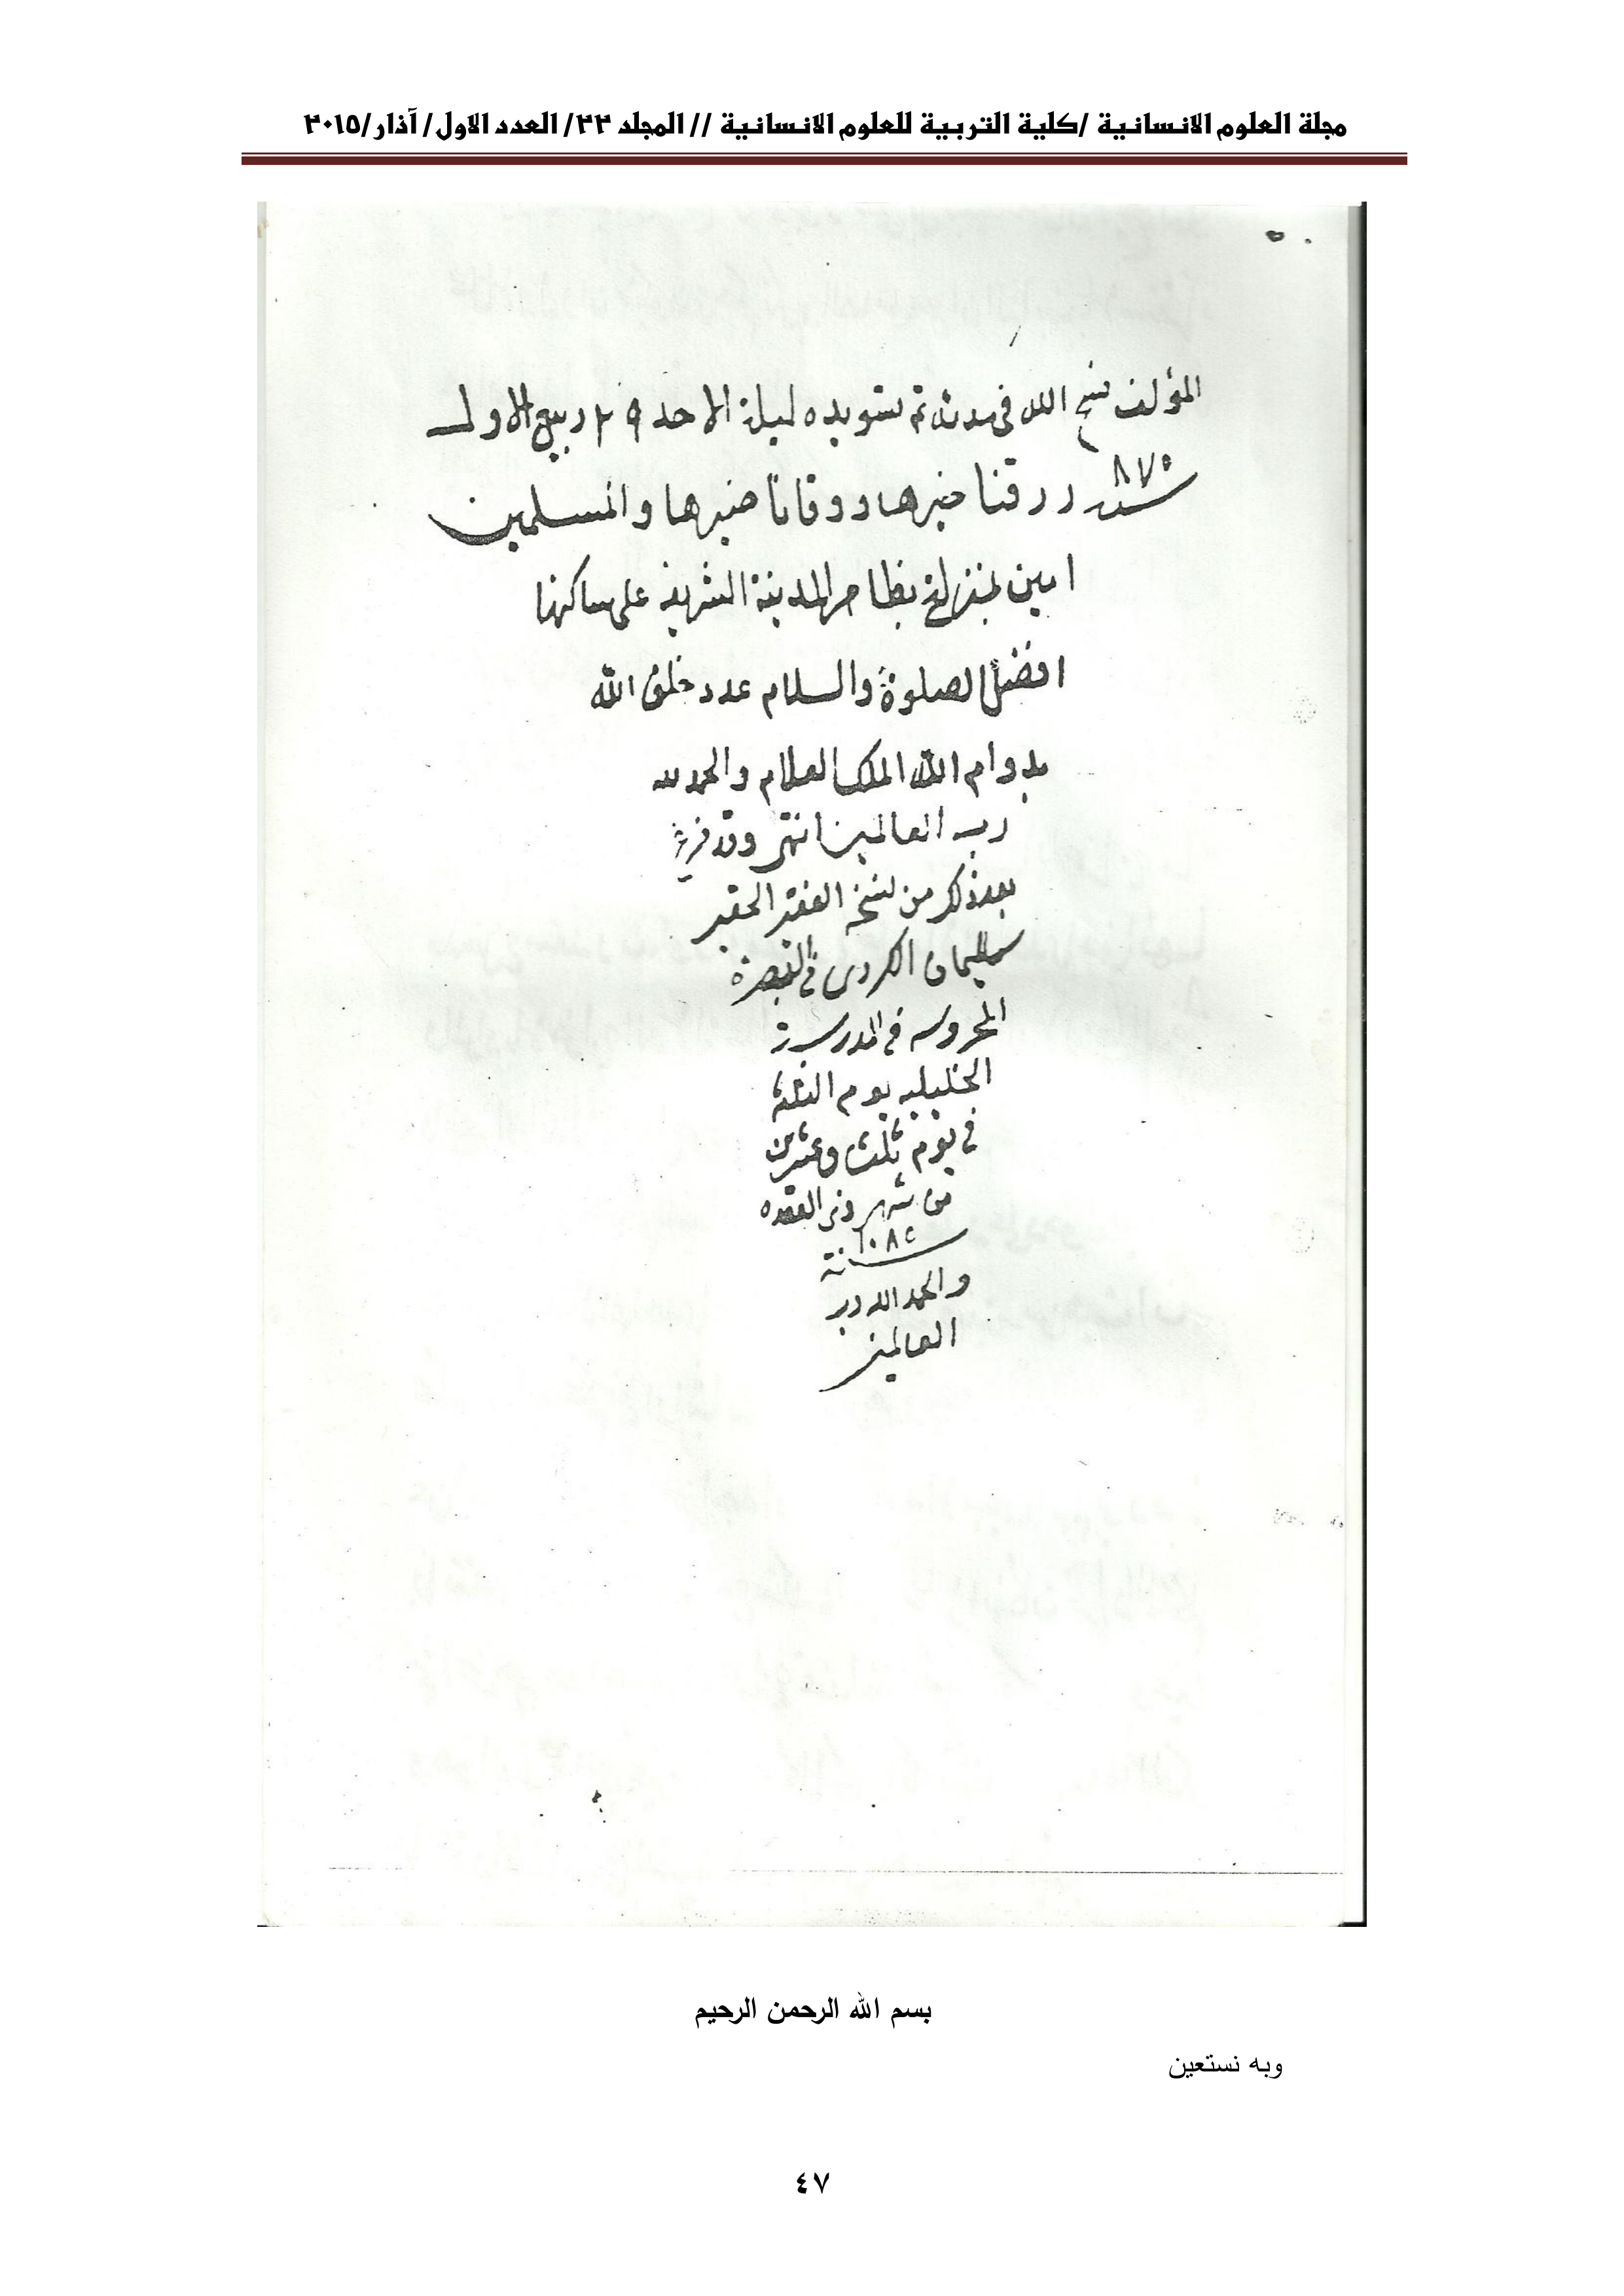 مجلة العلوم الانسانية /كلية التربية للعلوم الانسانية // المجلد ٢٢/ العدد الاول/ آذار/٢٠١٥
المؤلف فسح الله في مدته تم تسويده ليلة الاحد ٢٩ ربيع الاول
سنة ٨٧٥ رزقنا خيرها ووقانا ضيرها والمسلمين
امين بمنزله بظاهر المدينة الشريفة على ساكنها
افضل الصلوة والسلام عدد خلق الله
بدوام الله الملك العلام والحمد لله
رب العالمين انتهى وقد فرغ
بعد ذلك من نسخه الفقير الحقير
سليمان الكردي في البصرة
المحروسه في المدرسة
الخليليه يوم الثلثا
في يوم ثلث وعشرين
من شهر ذي القعده
سنة ١٠٨٥
والحمد الله رب
العالمين
بسم الله الرحمن الرحيم
وبه نستعين
٤٧